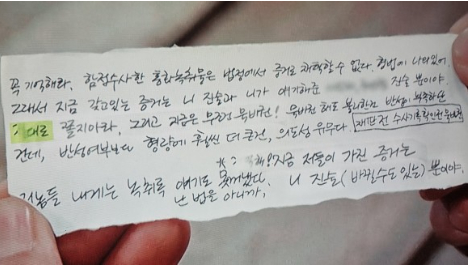 꼭 기억해라, 함정수사한 통화녹취물은 법정에서 증거로 채택할 수 없다. 형법이 나와있어
그래서 지금 갖고있는 증거는 니 진술과 니가 얘기하는 진술 뿐이야
대로 쫄지마라, 그리고 지금은 무조건 묵비권! 묵비권 하면 불리한건 반성이 부족하단
건데, 반성여부보다 형량에 훨씬 더 큰건, 의도성 유무다. 재판전 수사기록확인전
지금 저들이 가진 증거는
저놈들 내게는 녹취록 얘기도 못꺼냈다. 니 진술(바뀔수도 있는) 뿐이야.
난 법을 아니까,